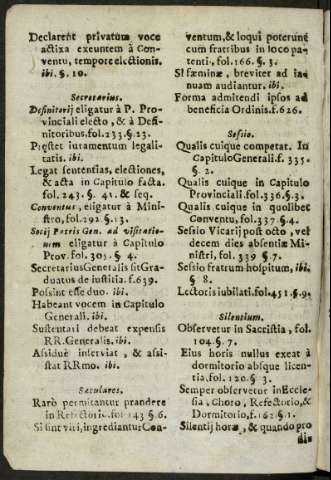 Declarent privatum voce
activa exeuntem à Con-
ventu, tempore electionis.
ibi. §. 10.
Secretarius.
Definitorij eligatur à P. Pro-
vinciali electo, & à Defi-
nitoribus. fol. 233. §. 23.
Præstet iuramentum legali-
tatis. ibi.
Legat sententias, electiones,
& acta in Capitulo facta.
fol. 243. §. 41. & seq.
Conventus, eligatur à Mini-
stro, fol. 292. §. 13.
Socij Patris Gen. ad visitatio-
nem eligatur à Capitulo
Prov. fol. 305. §. 4.
Secretarius Generalis sit Gra-
duatus de iustitia. f. 639.
Possint esse duo. ibi.
Habeant vocem in Capitulo
Generali. ibi.
Sustentari debeat expensis
RR. Generalis. ibi.
Assiduè inserviat, & assi-
stat RRmo. ibi.
Seculares.
Rarò permitantur prandere
in Refectorio. fol. 143 §. 6.
Si sint viri, ingrediantur Con-
ventum, & loqui poterunt
cum fratribus in loco pa-
tenti, fol. 166. §. 3.
Si fæminæ, breviter ad ia-
nuam audiantur. ibi.
Forma admitendi ipsos ad
beneficia Ordinis. f. 626.
Sessio.
Qualis cuique competat. In
Capitulo Generali. f. 335.
§. 2.
Qualis cuique in Capitulo
Provinciali. f. 336. §. 3.
Qualis cuique in quolibet
Conventu, fol. 337 §. 4.
Sessio Vicarij post octo, vel
decem dies absentiæ Mi-
nistri, fol. 339 §. 7.
Sessio fratrum hospitum, ibi,
§ 8.
Lectoris iubilati. fol. 451. §. 9.
Silentium.
Observetur in Sacristia, fol.
104. §. 7.
Eius horis nullus exeat à
dormitorio absque licen-
tia, fol. 120. §. 3.
Semper observetur in Eccle-
sia, Choro, Refectorio, &
Dormitorio, f. 162. §. 1.
Silentij horæ, & quando pro
di-